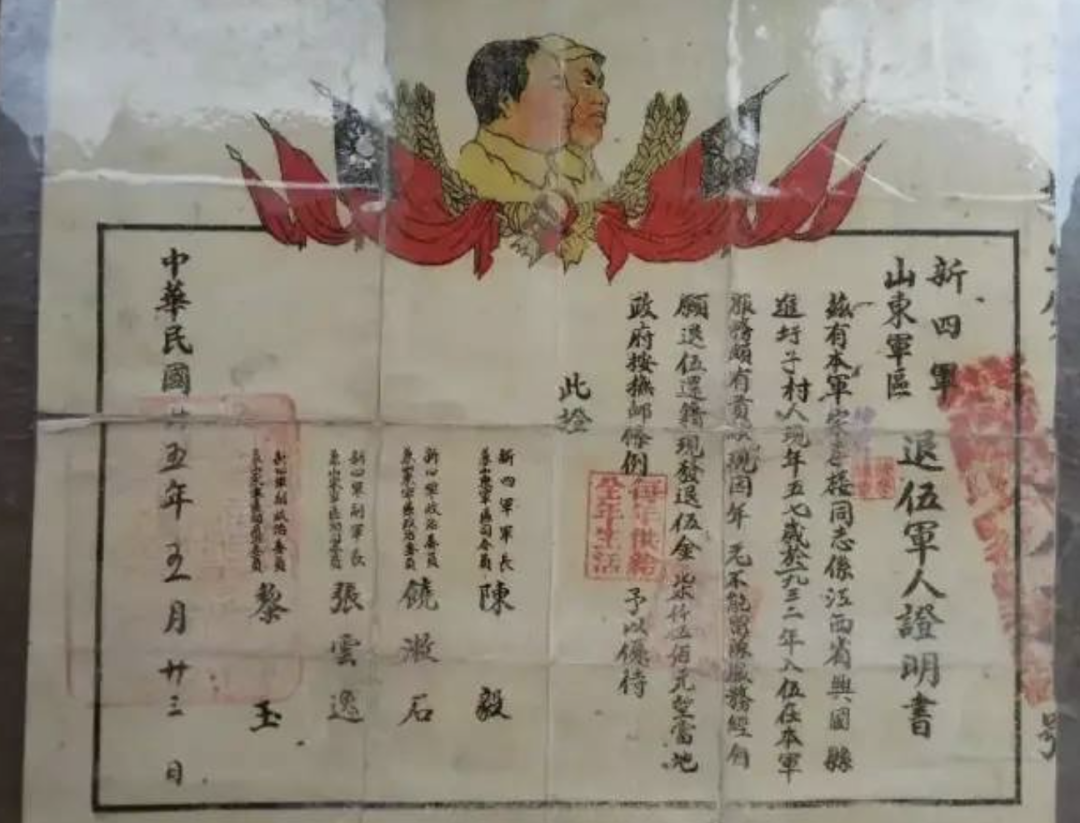 新四軍
山東軍區
退伍軍人證明書
茲有本軍 同志係江西省興國縣
進圩子村人現年五七歲於一九三二年入伍在本軍
服務頗有貢獻現因年 不能留隊服務經自
願退伍還籍現發退伍金柒仟伍佰元至當地
政府按撫卹條例 予以優待
每年供給
全年生活
此證
新四軍軍長
兼山東軍區司令員 陳毅
新四軍政治委員
兼山東軍區政治委員 饒漱石
新四軍副軍長
張雲逸
新四軍副政治委員
黎玉
中華民國卅五年五月廿三日
號